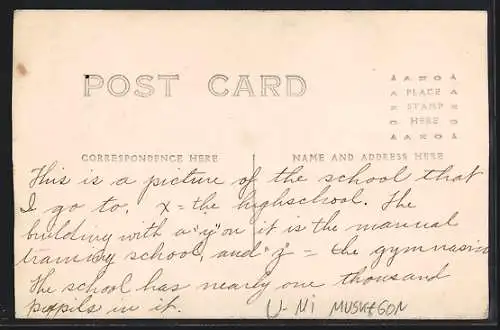 POST CARD
AZO
PLACE
STAMP
HERE
AZO
CORRESPONDENCE HERE
NAME AND ADDRESS HERE
This is a picture of the school that
I go to. x = the highschool. The
building with a "y" on it is the manual
training school, and "z" = the gymnasium
The school has nearly one thousand
pupils in it.
U-NI MUSKEGON